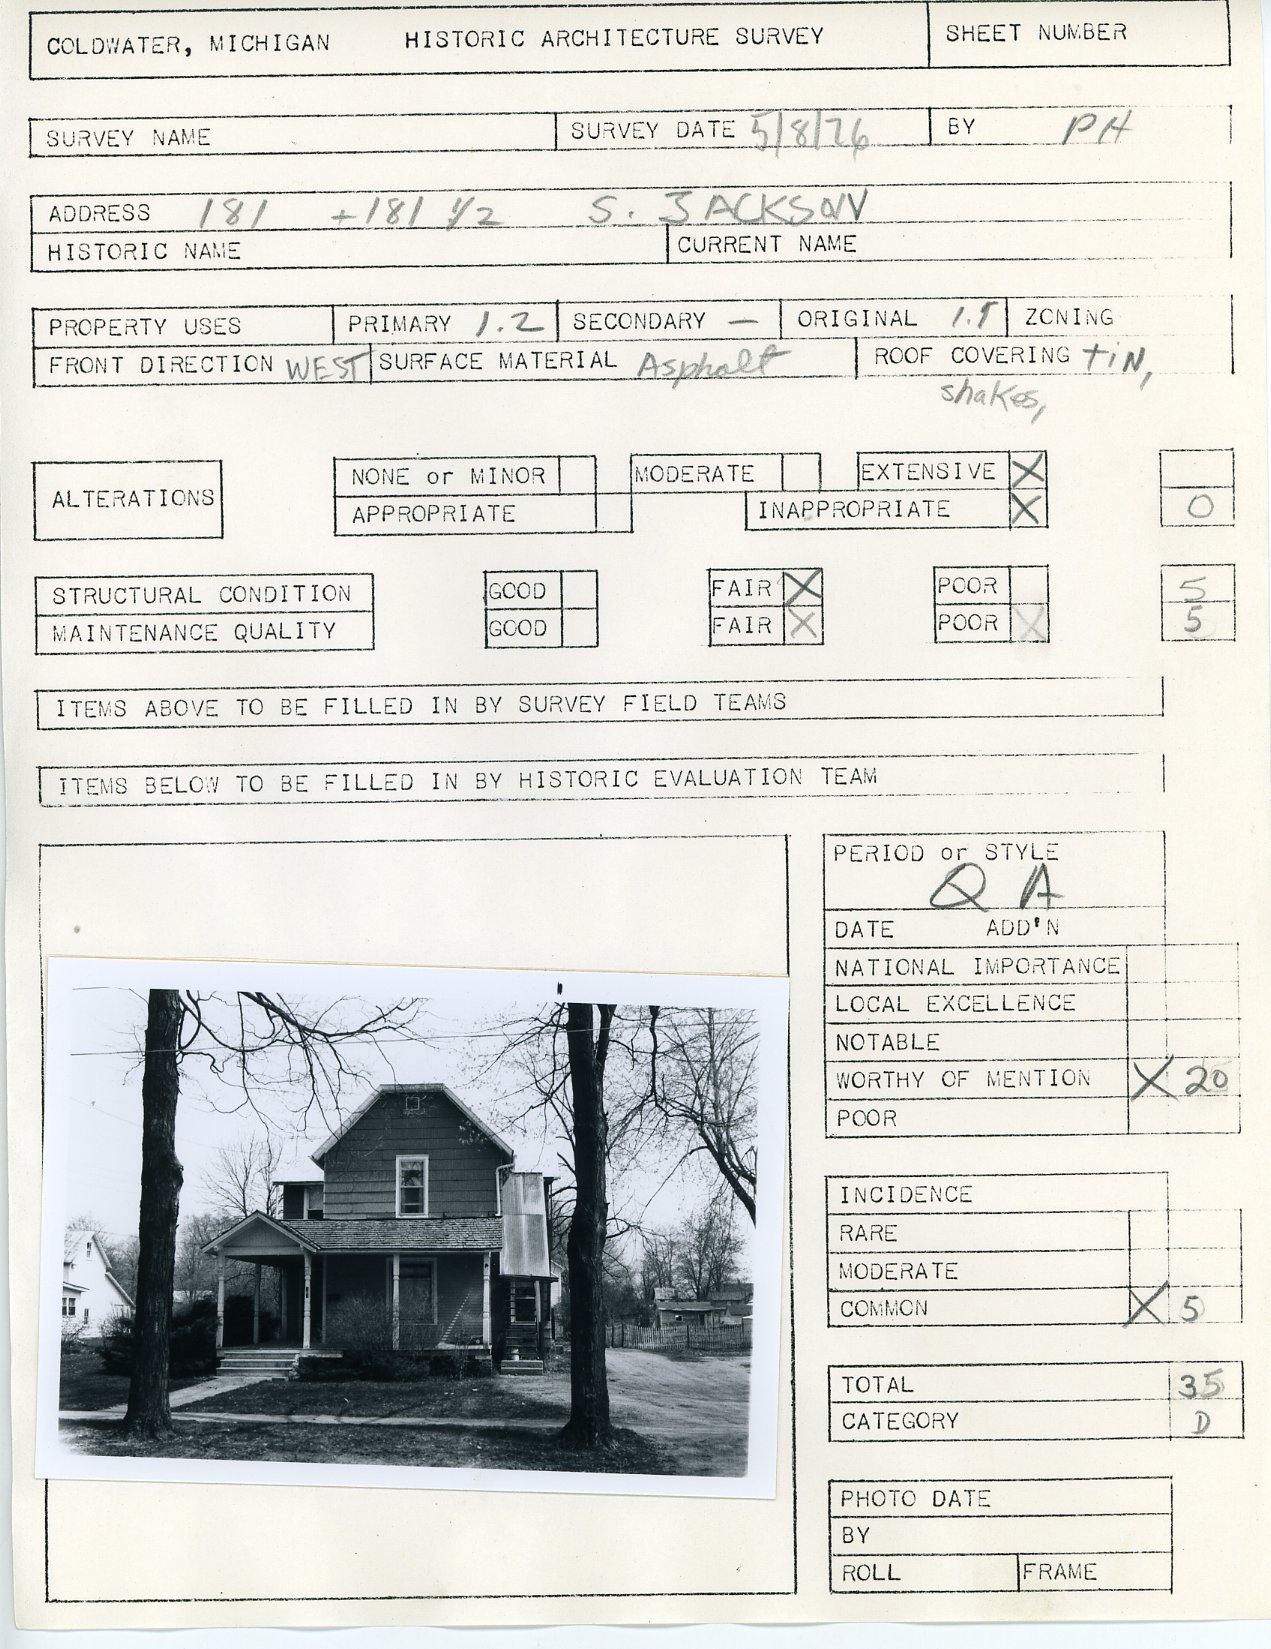 COLDWATER, MICHIGAN HISTORIC ARCHITECTURE SURVEY SHEET NUMBER
SURVEY NAME SURVEY DATE 5/8/76 BY PH
ADDRESS 181 + 181 1/2 S. JACKSON
HISTORIC NAME CURRENT NAME
PROPERTY USES PRIMARY 1.2 SECONDARY — ORIGINAL 1.1 ZONING
FRONT DIRECTION WEST SURFACE MATERIAL Asphalt ROOF COVERING tiN,
shakes,
NONE or MINOR MODERATE EXTENSIVE X
ALTERATIONS
APPROPRIATE INAPPROPRIATE X 0
STRUCTURAL CONDITION GOOD FAIR X POOR 5
MAINTENANCE QUALITY GOOD FAIR X POOR X 5
ITEMS ABOVE TO BE FILLED IN BY SURVEY FIELD TEAMS
ITEMS BELOW TO BE FILLED IN BY HISTORIC EVALUATION TEAM
PERIOD or STYLE
Q A
DATE ADD'N
NATIONAL IMPORTANCE
LOCAL EXCELLENCE
NOTABLE
WORTHY OF MENTION X 20
POOR
INCIDENCE
RARE
MODERATE
COMMON X 5
TOTAL 35
CATEGORY D
PHOTO DATE
BY
ROLL FRAME